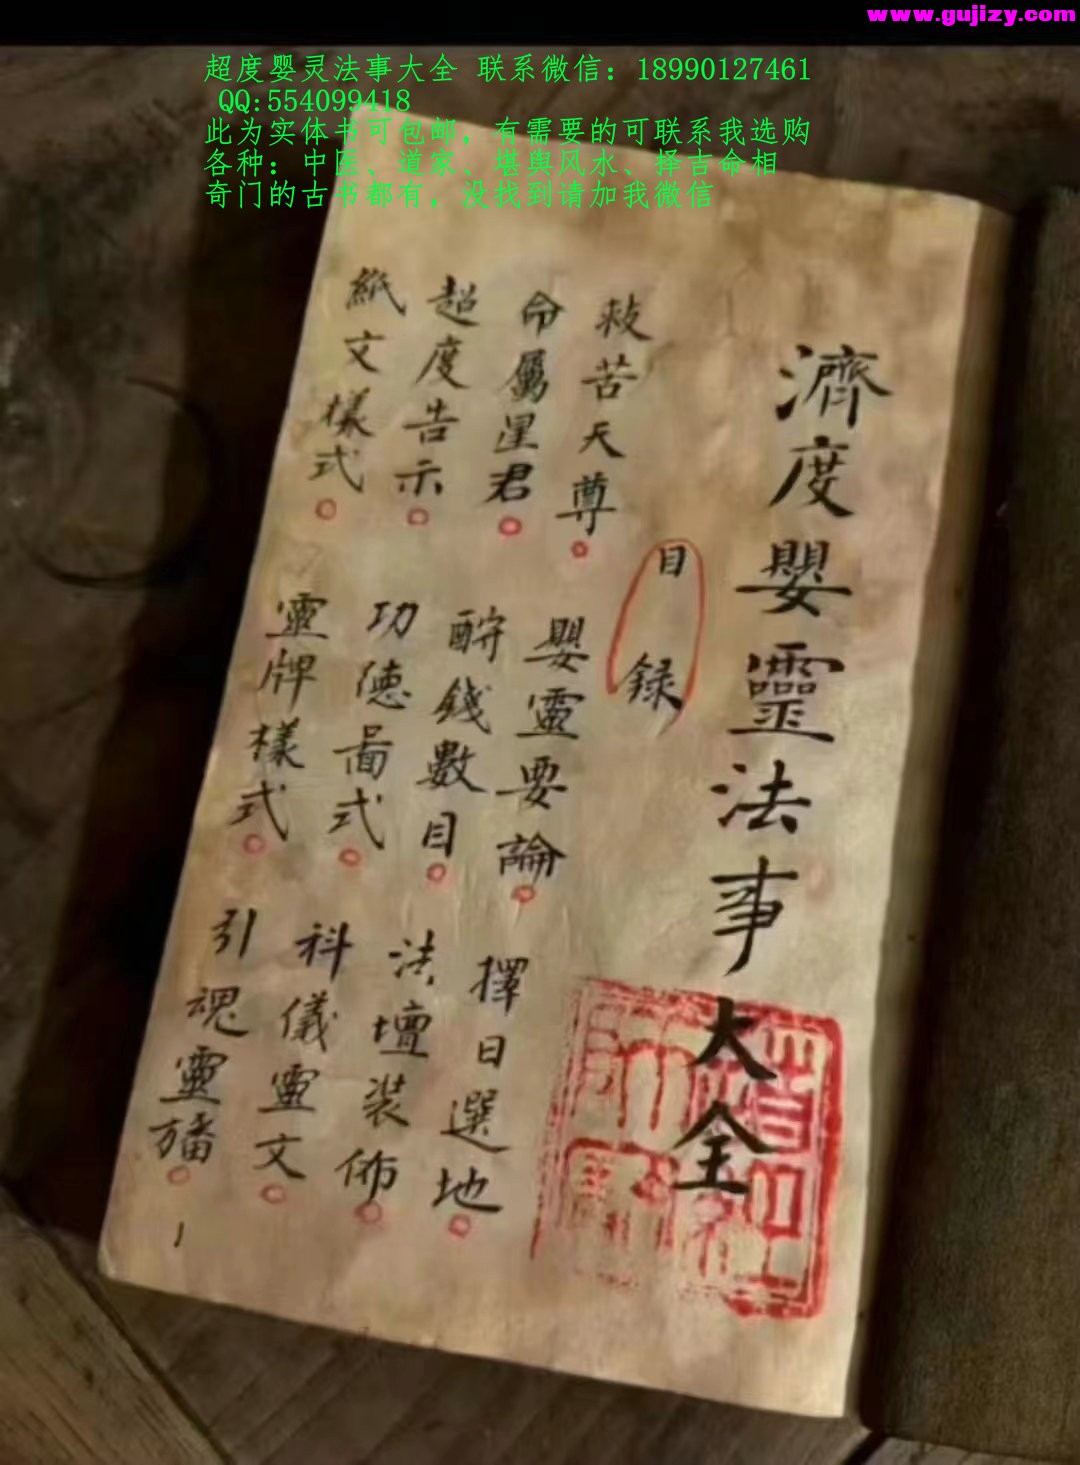 www.gujizy.com
超度婴灵法事大全 联系微信：18990127461
QQ:554099418
此为实体书可包邮，有需要的可联系我选购
各种：中医、道家、堪舆风水、择吉命相
奇门的古书都有，没找到请加我微信
濟度嬰靈法事大全
目録
救苦天尊 嬰靈要論 擇日選地
命屬星君 酧錢數目 法壇裝佈
超度告示 功德啚式 科儀靈文
紙文樣式 靈牌樣式 引魂靈旛
1